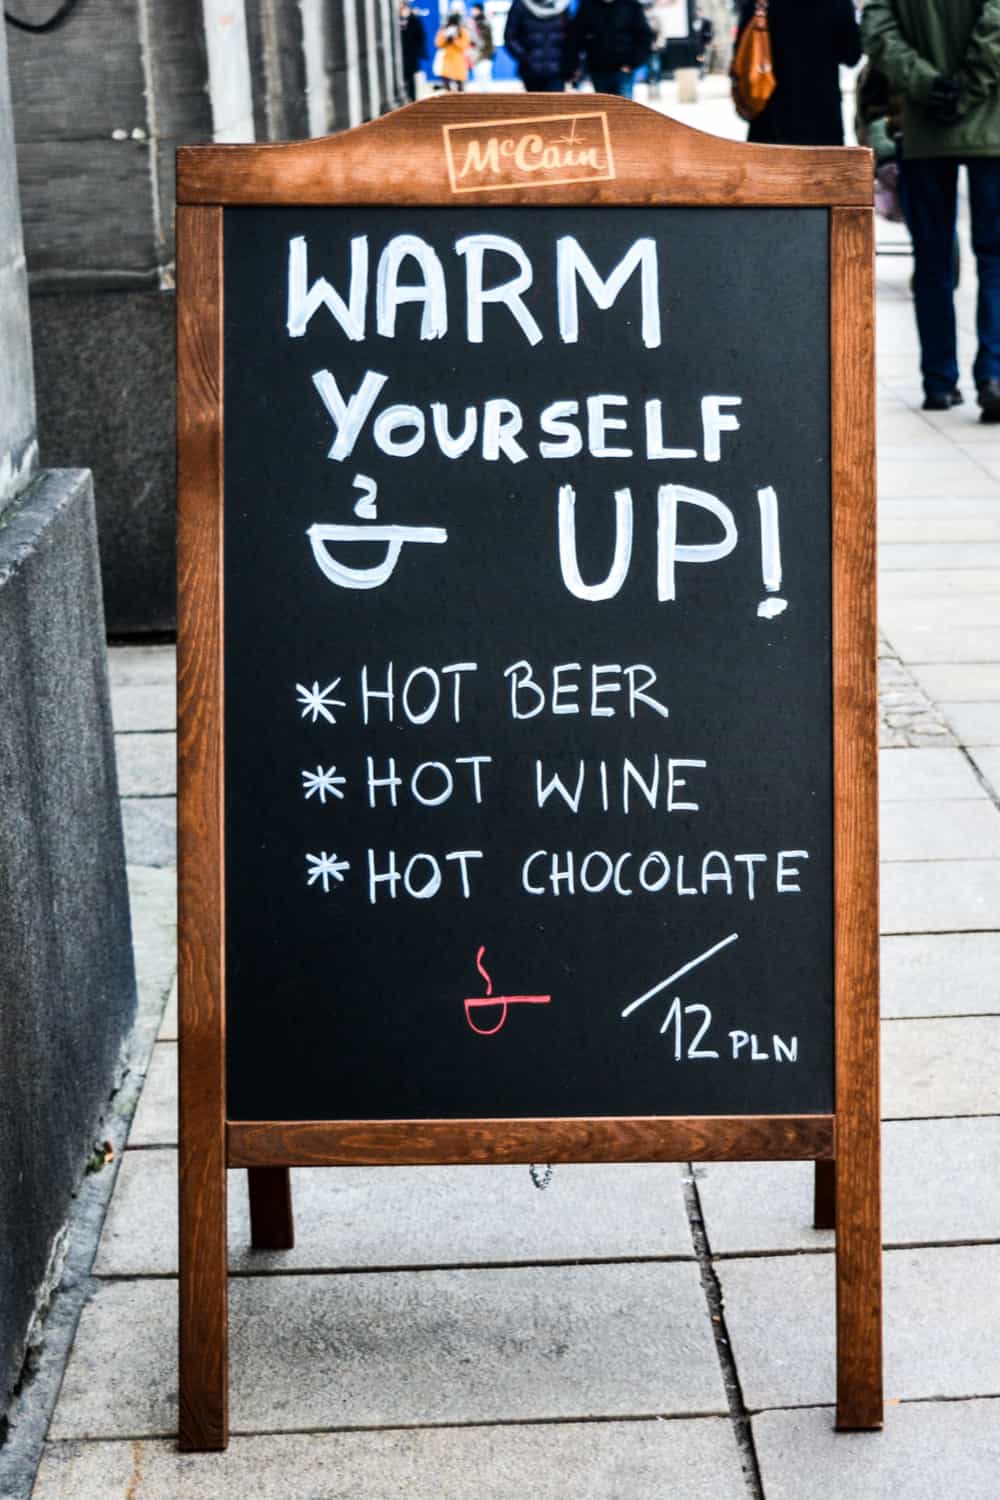 McCain
WARM
YOURSELF
UP!
* HOT BEER
* HOT WINE
* HOT CHOCOLATE
/ 12 PLN